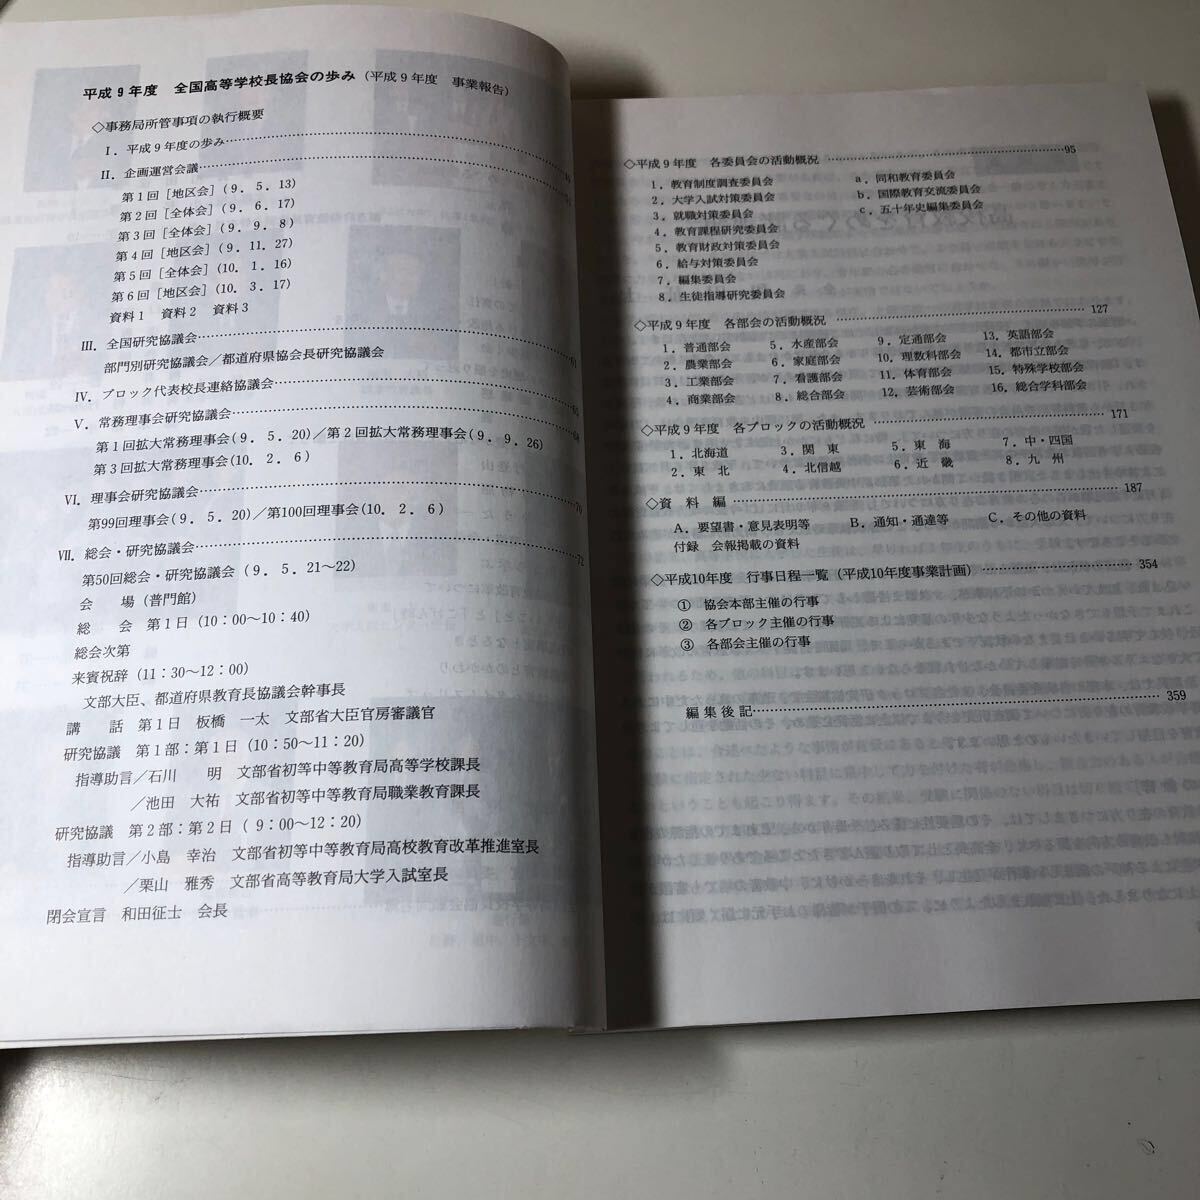 平成9年度　全国高等学校長協会の歩み（平成9年度　事業報告）
◇事務局所管事項の執行概要
Ⅰ．平成9年度の歩み
Ⅱ．企画運営会議
第1回［地区会］（9．5．13）
第2回［全体会］（9．6．17）
第3回［全体会］（9．9．8）
第4回［地区会］（9．11．27）
第5回［全体会］（10．1．16）
第6回［地区会］（10．3．17）
資料1　資料2　資料3
Ⅲ．全国研究協議会
部門別研究協議会／都道府県協会長研究協議会
Ⅳ．ブロック代表校長連絡協議会
Ⅴ．常務理事会研究協議会
第1回拡大常務理事会（9．5．20）／第2回拡大常務理事会（9．9．26）
第3回拡大常務理事会（10．2．6）
Ⅵ．理事会研究協議会………70
第99回理事会（9．5．20）／第100回理事会（10．2．6）
Ⅶ．総会・研究協議会………72
第50回総会・研究協議会（9．5．21〜22）
会　　場（普門館）
総　　会　第1日（10：00〜10：40）
総会次第
来賓祝辞（11：30〜12：00）
文部大臣、都道府県教育長協議会幹事長
講　　話　第1日　板橋　一太　文部省大臣官房審議官
研究協議　第1部：第1日（10：50〜11：20）
指導助言／石川　　明　文部省初等中等教育局高等学校課長
／池田　大祐　文部省初等中等教育局職業教育課長
研究協議　第2部：第2日（ 9：00〜12：20）
指導助言／小島　幸治　文部省初等中等教育局高校教育改革推進室長
／栗山　雅秀　文部省高等教育局大学入試室長
閉会宣言　和田征士　会長
◇平成9年度　各委員会の活動概況………95
1．教育制度調査委員会　a．同和教育委員会
2．大学入試対策委員会　b．国際教育交流委員会
3．就職対策委員会　c．五十年史編集委員会
4．教育課程研究委員会
5．教育財政対策委員会
6．給与対策委員会
7．編集委員会
8．生徒指導研究委員会
◇平成9年度　各部会の活動概況………127
1．普通部会　5．水産部会　9．定通部会　13．英語部会
2．農業部会　6．家庭部会　10．理数科部会　14．都市立部会
3．工業部会　7．看護部会　11．体育部会　15．特殊学校部会
4．商業部会　8．総合部会　12．芸術部会　16．総合学科部会
◇平成9年度　各ブロックの活動概況………171
1．北海道　3．関　東　5．東　海　7．中・四国
2．東　北　4．北信越　6．近　畿　8．九　州
◇資　料　編………187
A．要望書・意見表明等　B．通知・通達等　C．その他の資料
付録　会報掲載の資料
◇平成10年度　行事日程一覧（平成10年度事業計画）………354
①　協会本部主催の行事
②　各ブロック主催の行事
③　各部会主催の行事
編集後記………359